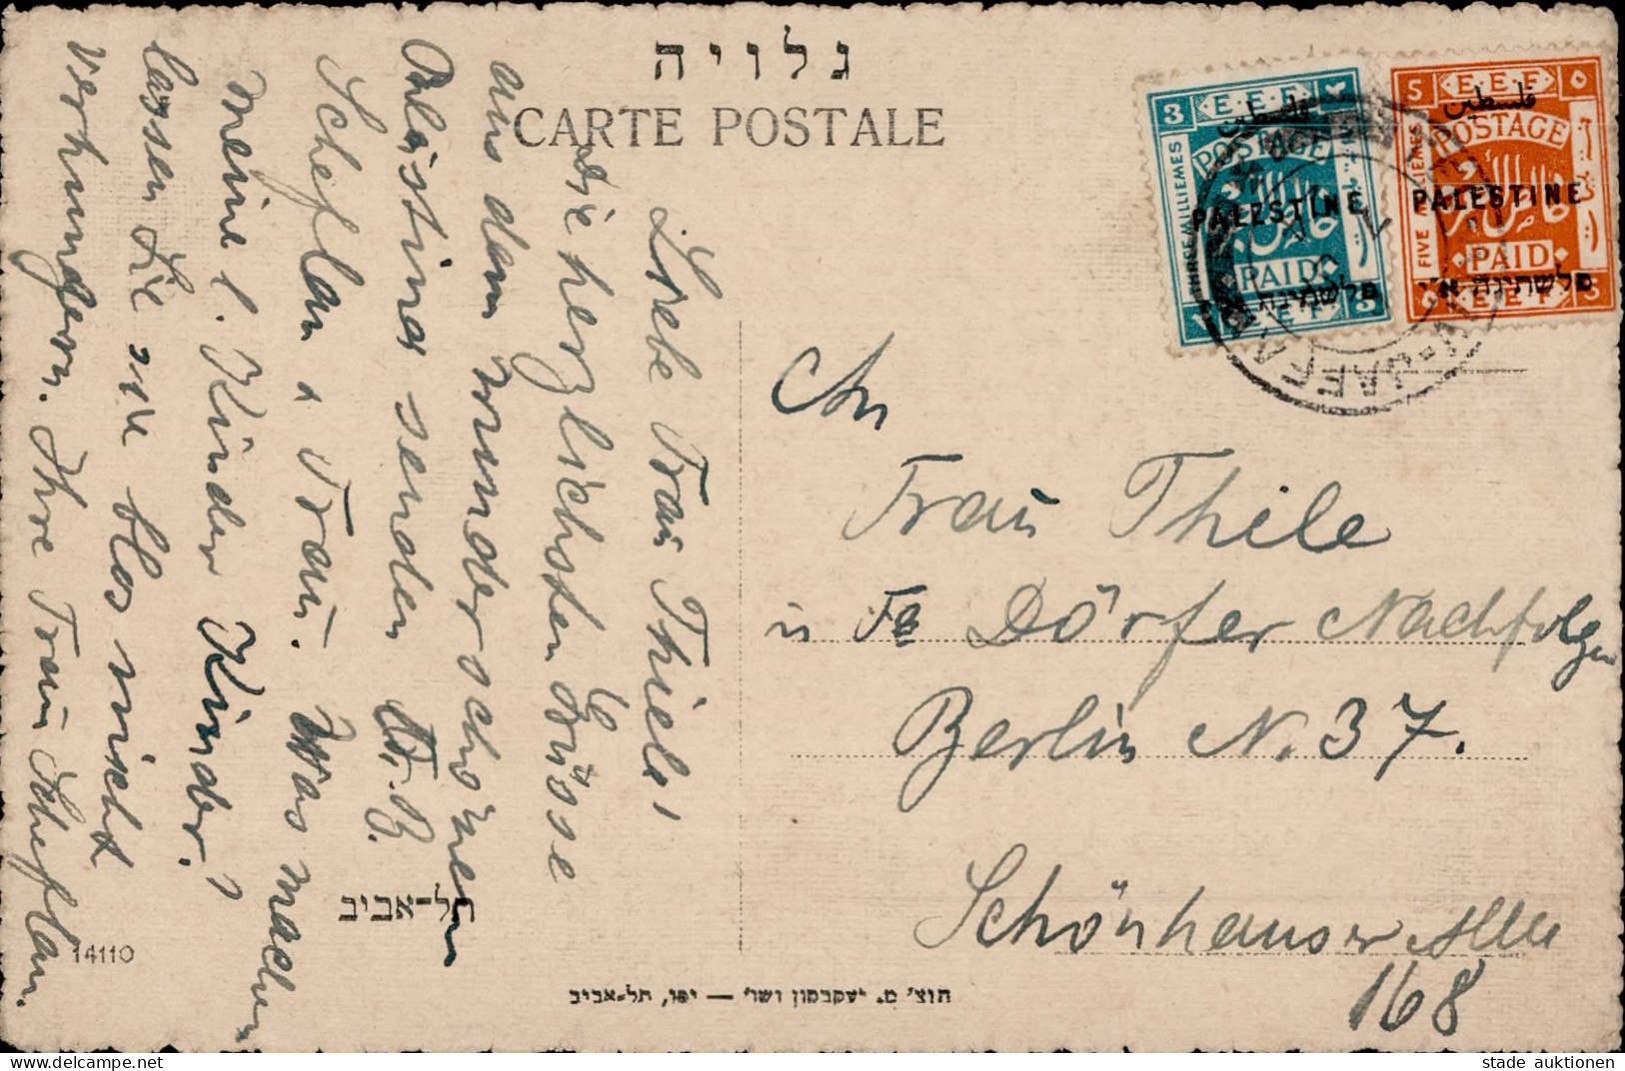 גלויה
CARTE POSTALE
Liebe Frau Thiele!
die herzlichsten Grüsse
aus dem wunderschönen
Palästina senden Dr. B.
Scheflan u. Frau. Was machen
meine l. Kinder Kinder?
lassen Sie sie blos nicht
verhungern. Ihre Frau Scheflan.
An
Frau Thile
in Fa Dörfer Nachfolger
Berlin N. 37.
Schönhauser Allee
168
תל-אביב
14110
הוצ' מ. יעקבסון ושר' — יפו, תל-אביב
3 E.E.F ٣
فلسطين
POSTAGE
THREE MILLIEMES
PALESTINE
PAID
פלשתינה א״י
E.E.F 3
5 E.E.F ٥
فلسطين
POSTAGE
FIVE MILLIEMES
PALESTINE
PAID
פלשתינה א״י
E.E.F 5
JAFFA
www.delcampe.net
stade auktionen